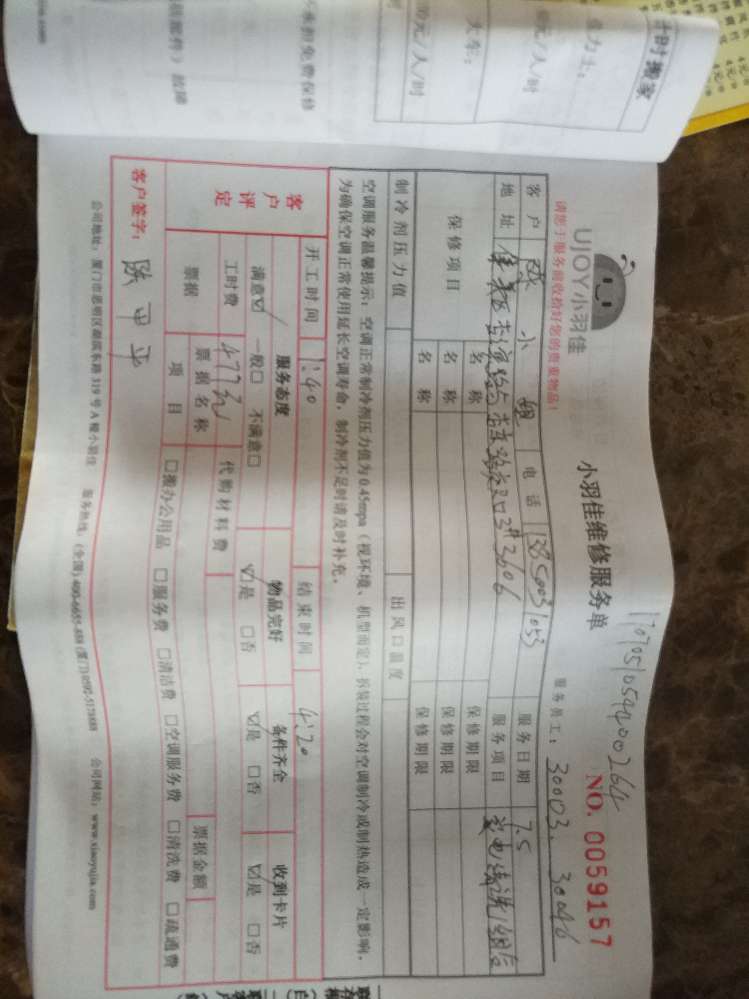 计时搬家
大车：
元/人/时
元/人/时
承担免费保修
部件）故障
4元/
4元/
UJOY小羽佳
小羽佳维修服务单
NO. 0059157
请您于服务前收拾好您的贵重物品！
服务员工：30003. 30046
客户
小姐
电话
服务日期
7.5
地址
服务项目
保修项目
名称
保修期限
名称
保修期限
名称
保修期限
制冷剂压力值
出风口温度
空调服务温馨提示：空调正常制冷剂压力值为0.45mpa（视环境、机型而定），拆装过程会对空调制冷或制热造成一定影响，
为确保空调正常使用延长空调寿命，制冷剂不足时请及时补充。
开工时间
1:40
结束时间
4:20
客户评定
服务态度
物品完好
备件齐全
收到卡片
满意☑ 一般☐ 不满意☐
☑是 ☐否
☑是 ☐否
☑是 ☐否
工时费
477元
代购材料费
票据
票据名称
票据金额
项目
☐搬办公用品 ☐服务费 ☐清洁费 ☐空调服务费 ☐清洗费 ☐疏通费
客户签字：
公司地址：厦门市思明区湖滨东路319号A幢小羽佳
服务热线：(全国) 400-6655-888 (厦门) 0592-5173888
公司网站：www.xiaoyujia.com